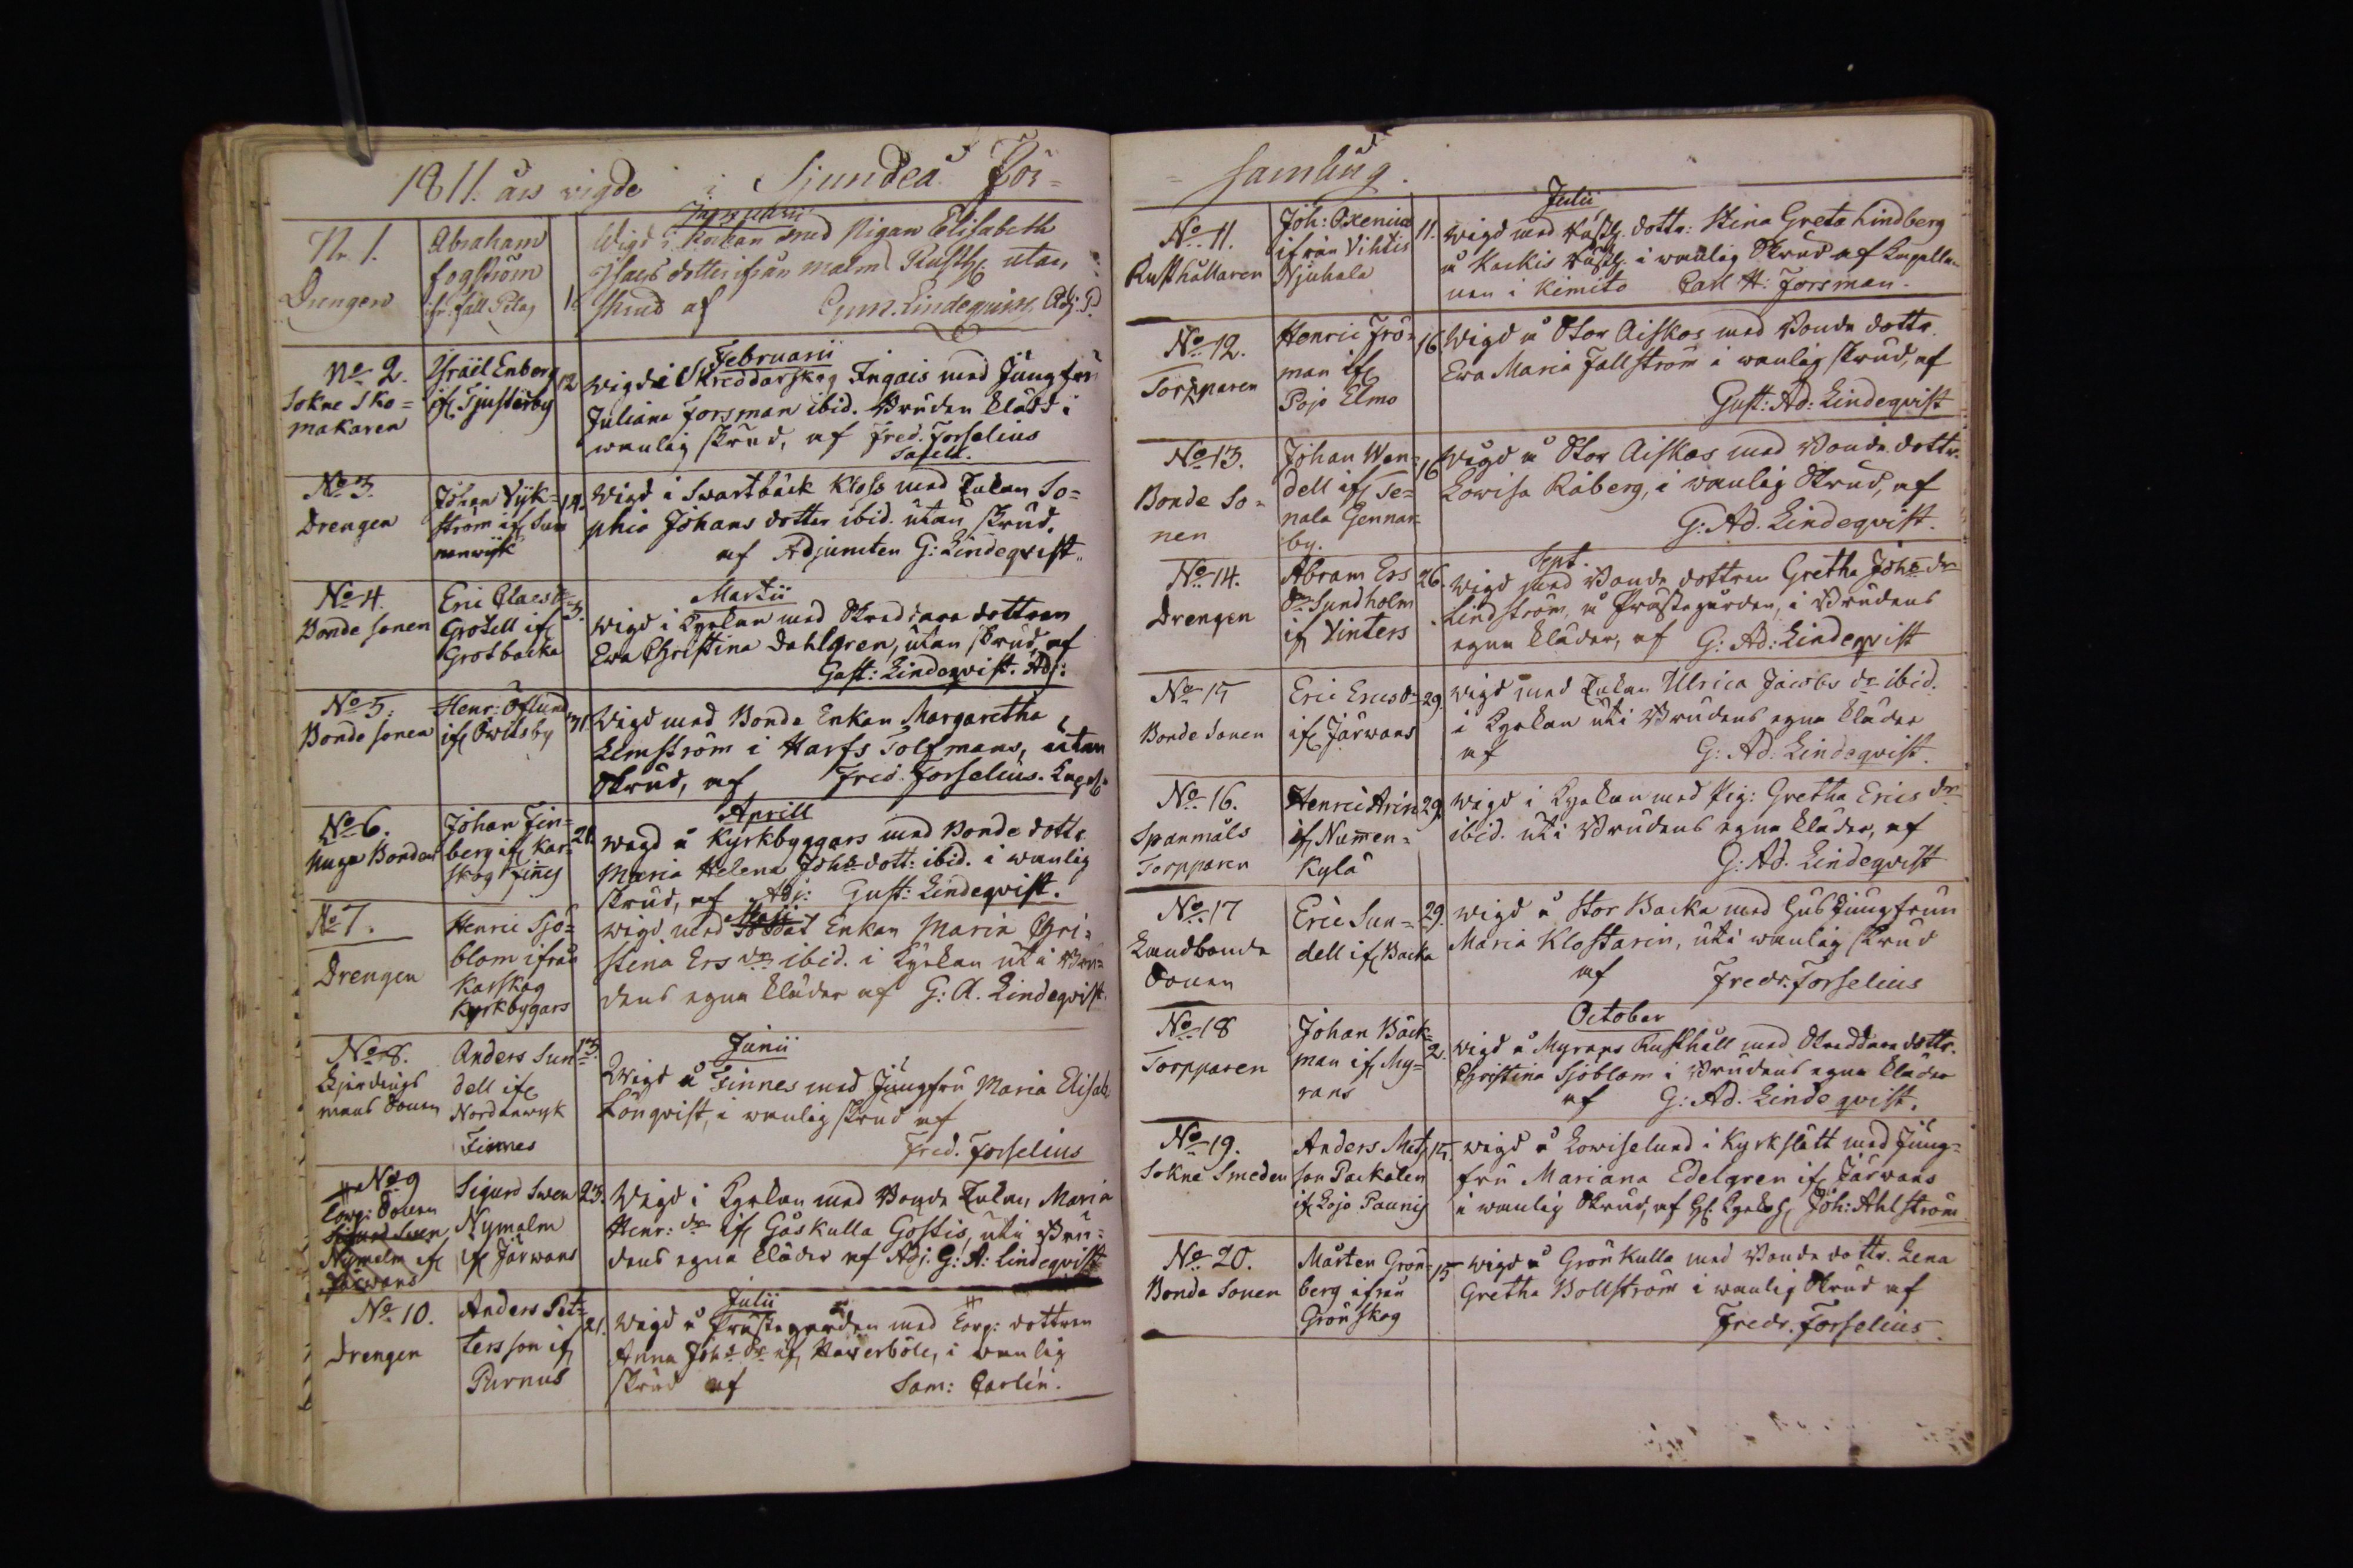 1811. års vigde i Sjundeå För=
Januarii
Nr. 1.
Drengen
Abraham
fogström
ifr. fall Petag
1.
Wigd i Kyrkan med Pigan Elisabeth
Isacs dotter ifrån malm Rusth utan
skrud af Gust. Lindequist, Adj. P.
Februarii
No 2.
Sokne Sko=
makaren
Israël Enberg
if Tjusterby
12
wigd i Skreddarskog Ingais med Jungfru
Juliana Forsman ibid. Bruden klädd i
wanlig skrud, af Fred. Forselius
No 3.
Drengen
Johan Vijk=
ström if Sun
nanwijk
19.
Wigd i Swartbäck Kloss med Enkan So=
phia Johans dotter ibid. utan skrud,
af Adjuncten G: Lindeqvist.
Martii
No 4.
Bonde sonen
Eric Claes
Grotell if
Grotbacka
3.
wigd i Kyrkan med Skreddare dottren
Ewa Christina Dahlgren, utan skrud af
Gust: Lindeqvist. Adj:
No 5.
Bonde sonen
Henr: Öflund
if Öwitsby
31
Wigd med Bonde Enkan Margaretha
Elmström i Harfs Tolfmans, utan
Skrud, af Fred. Forselius. Capel
Aprill
No 6.
unga Bonden
Johan Fin=
berg if Kar=
skog Finnis
21.
wigd å Kyrkbyggars med Bonde dottr
Maria Helena Johs dott: ibid. i wanlig
skrud, af Adj: Gust: Lindeqvist.
Maji
No 7.
Drengen
Henric Sjö=
blom ifrån
Karskog
Kyrkbygars
wigd med Soldat Enkan Maria Chri=
stina Ers dr ibid. i Kyrkan uti Bru=
dens egna kläder af G: A. Lindeqvist.
Junii
No 8.
Fjerdings
mans Sonen
Anders Sun
dell if
Nordanwyk
Finnes
13.
Wigd å Finnes med Jungfru Maria Elisab.
Lönqvist, i wanlig skrud af
Fred. Forselius
No 9
Torp: Sonen
Sigurd Swen
Nymalm if
Järwans
Sigurd Swen
Nymalm
if Järwans
23.
Wigd i Kyrkan med Bonde Enkan Maria
Henr: dr if Gåskulla Gostis, uti Bru=
dens egna kläder af Adj. G: A: Lindeqvist
Julii
No 10.
Drengen
Anders Pet=
tersson if
Purnus
21.
Wigd å Prästegården med Torp: dottren
Anna Johs dr if Hawerböle, i wanlig
skrud af Sam: Carlén.
= samling.
Julii
No 11.
Rusthållaren
Joh: Oxenius
ifrån Vihtis
Njuhala
11.
wigd med dottr: Stina Greta Lindberg
å Kackis i wanlig Skrud af Capella=
nen i Kimito Carl H: Forsman.
No 12.
Torpparen
Henric Frö=
man if
Pojo Elmo
16.
Wigd å Stor Aiskos med Bonde dottr
Ewa Maria Fallström i wanlig skrud, af
Gust: Ad: Lindeqvist
No 13.
Bonde So=
nen
Johan Wen=
dell if Te=
nala Gennar=
by.
16.
Wigd å Stor Aiskos med Bonde dottr.
Lowisa Råberg, i wanlig Skrud, af
G: Ad. Lindeqvist.
Sept.
No 14.
Drengen
Abram Ers
Sn Sundholm
if Vinters
26.
Wigd med Bonde dottren Gretha Johs dr
Lindström, å Prästegården, i Brudens
egna kläder, af G: Ad: Lindeqvist
No 15
Bonde Sonen
Eric Erics Sn
if Järwans
29
wigd med Enkan Ulrica Jacobs dr ibid.
i Kyrkan uti Brudens egna kläder
af G: Ad: Lindeqvist.
No 16.
Spanmåls
Torpparen
Henric Arin
if Nummen=
Kylä
29.
wigd i Kyrkan med Pig: Gretha Erics dr
ibid. uti Brudens egna kläder, af
G: Ad. Lindeqvist
No 17
Landbonde
Sonen
Eric Sun=
dell if Backa
29.
wigd å Stor Backa med Jungfrun
Maria Klostarin, uti wanlig skrud
af Fredr. Forselius
October
No 18
Torpparen
Johan Bäck=
man if My=
rans
2.
wigd å Myrans Rusthåll med Skreddare dottr.
Christina Sjöblom i Brudens egna kläder
af G: Ad. Lindeqvist.
No 19.
Sokne Smeden
Anders Mats
son Packalen
if Lojo Paunis
15.
wigd å Lowiselund i Kyrkslätt med Jung=
fru Mariana Edelgren if Järwans
i wanlig Skrud, af Joh: Ahlström
No 20.
Bonde Sonen
Mårten Grön=
berg ifrån
Grönskog
15
wigd å Grön Kulla med Bonde dottr. Lena
Gretha Bollström i wanlig Skrud af
Fredr. Forselius.